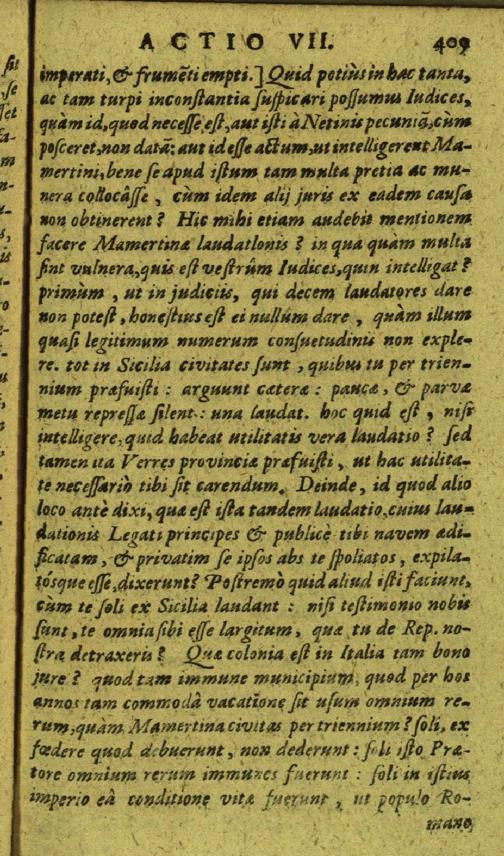 ACTIO VII. 409
imperati, & frumẽti empti.] Quid potiùs in hac tanta,
ac tam turpi inconstantia suspicari possumus Iudices,
quàm id, quod necesse est, aut isti à Netinis pecuniã, cùm
posceret, non datã: aut id esse actum, ut intelligerent Ma-
mertini, bene se apud istum tam multa pretia ac mu-
nera collocâsse, cùm idem alij juris ex eadem causa
non obtinerent? Hic mihi etiam audebit mentionem
facere Mamertinæ laudationis? in qua quàm multa
sint vulnera, quis est vestrûm Iudices, quin intelligat?
primùm, ut in judiciis, qui decem laudatores dare
non potest, honestius est ei nullúm dare, quàm illum
quasi legitimum numerum consuetudinis non exple-
re. tot in Sicilia civitates sunt, quibus tu per trien-
nium præfuisti: arguunt cæteræ: paucæ, & parvæ
metu repressæ silent: una laudat. hoc quid est, nisi
intelligere, quid habeat utilitatis vera laudatio? sed
tamen ita Verres provinciæ præfuisti, ut hac utilita-
te necessariò tibi sit carendum. Deinde, id quod alio
loco antè dixi, quæ est ista tandem laudatio, cuius lau-
dationis Legati principes & publicè tibi navem ædi-
ficatam, & privatim se ipsos abs te spoliatos, expila-
tósque esse, dixerunt? Postremò quid aliud isti faciunt,
cùm te soli ex Sicilia laudant: nisi testimonio nobis
sunt, te omnia sibi esse largitum, quæ tu de Rep. no-
stra detraxeris? Quæ colonia est in Italia tam bono
jure? quod tam immune municipium, quod per hos
annos tam commodâ vacatione sit usum omnium re-
rum, quàm Mamertina civitas per triennium? soli, ex
fœdere quod debuerunt, non dederunt: soli isto Præ-
tore omnium rerum immunes fuerunt: soli in istius
imperio eâ conditione vitæ fuerunt, ut populo Ro-
mano